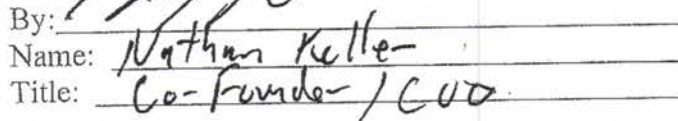 By:
Name: Nathan Keller
Title: Co-Founder / COO